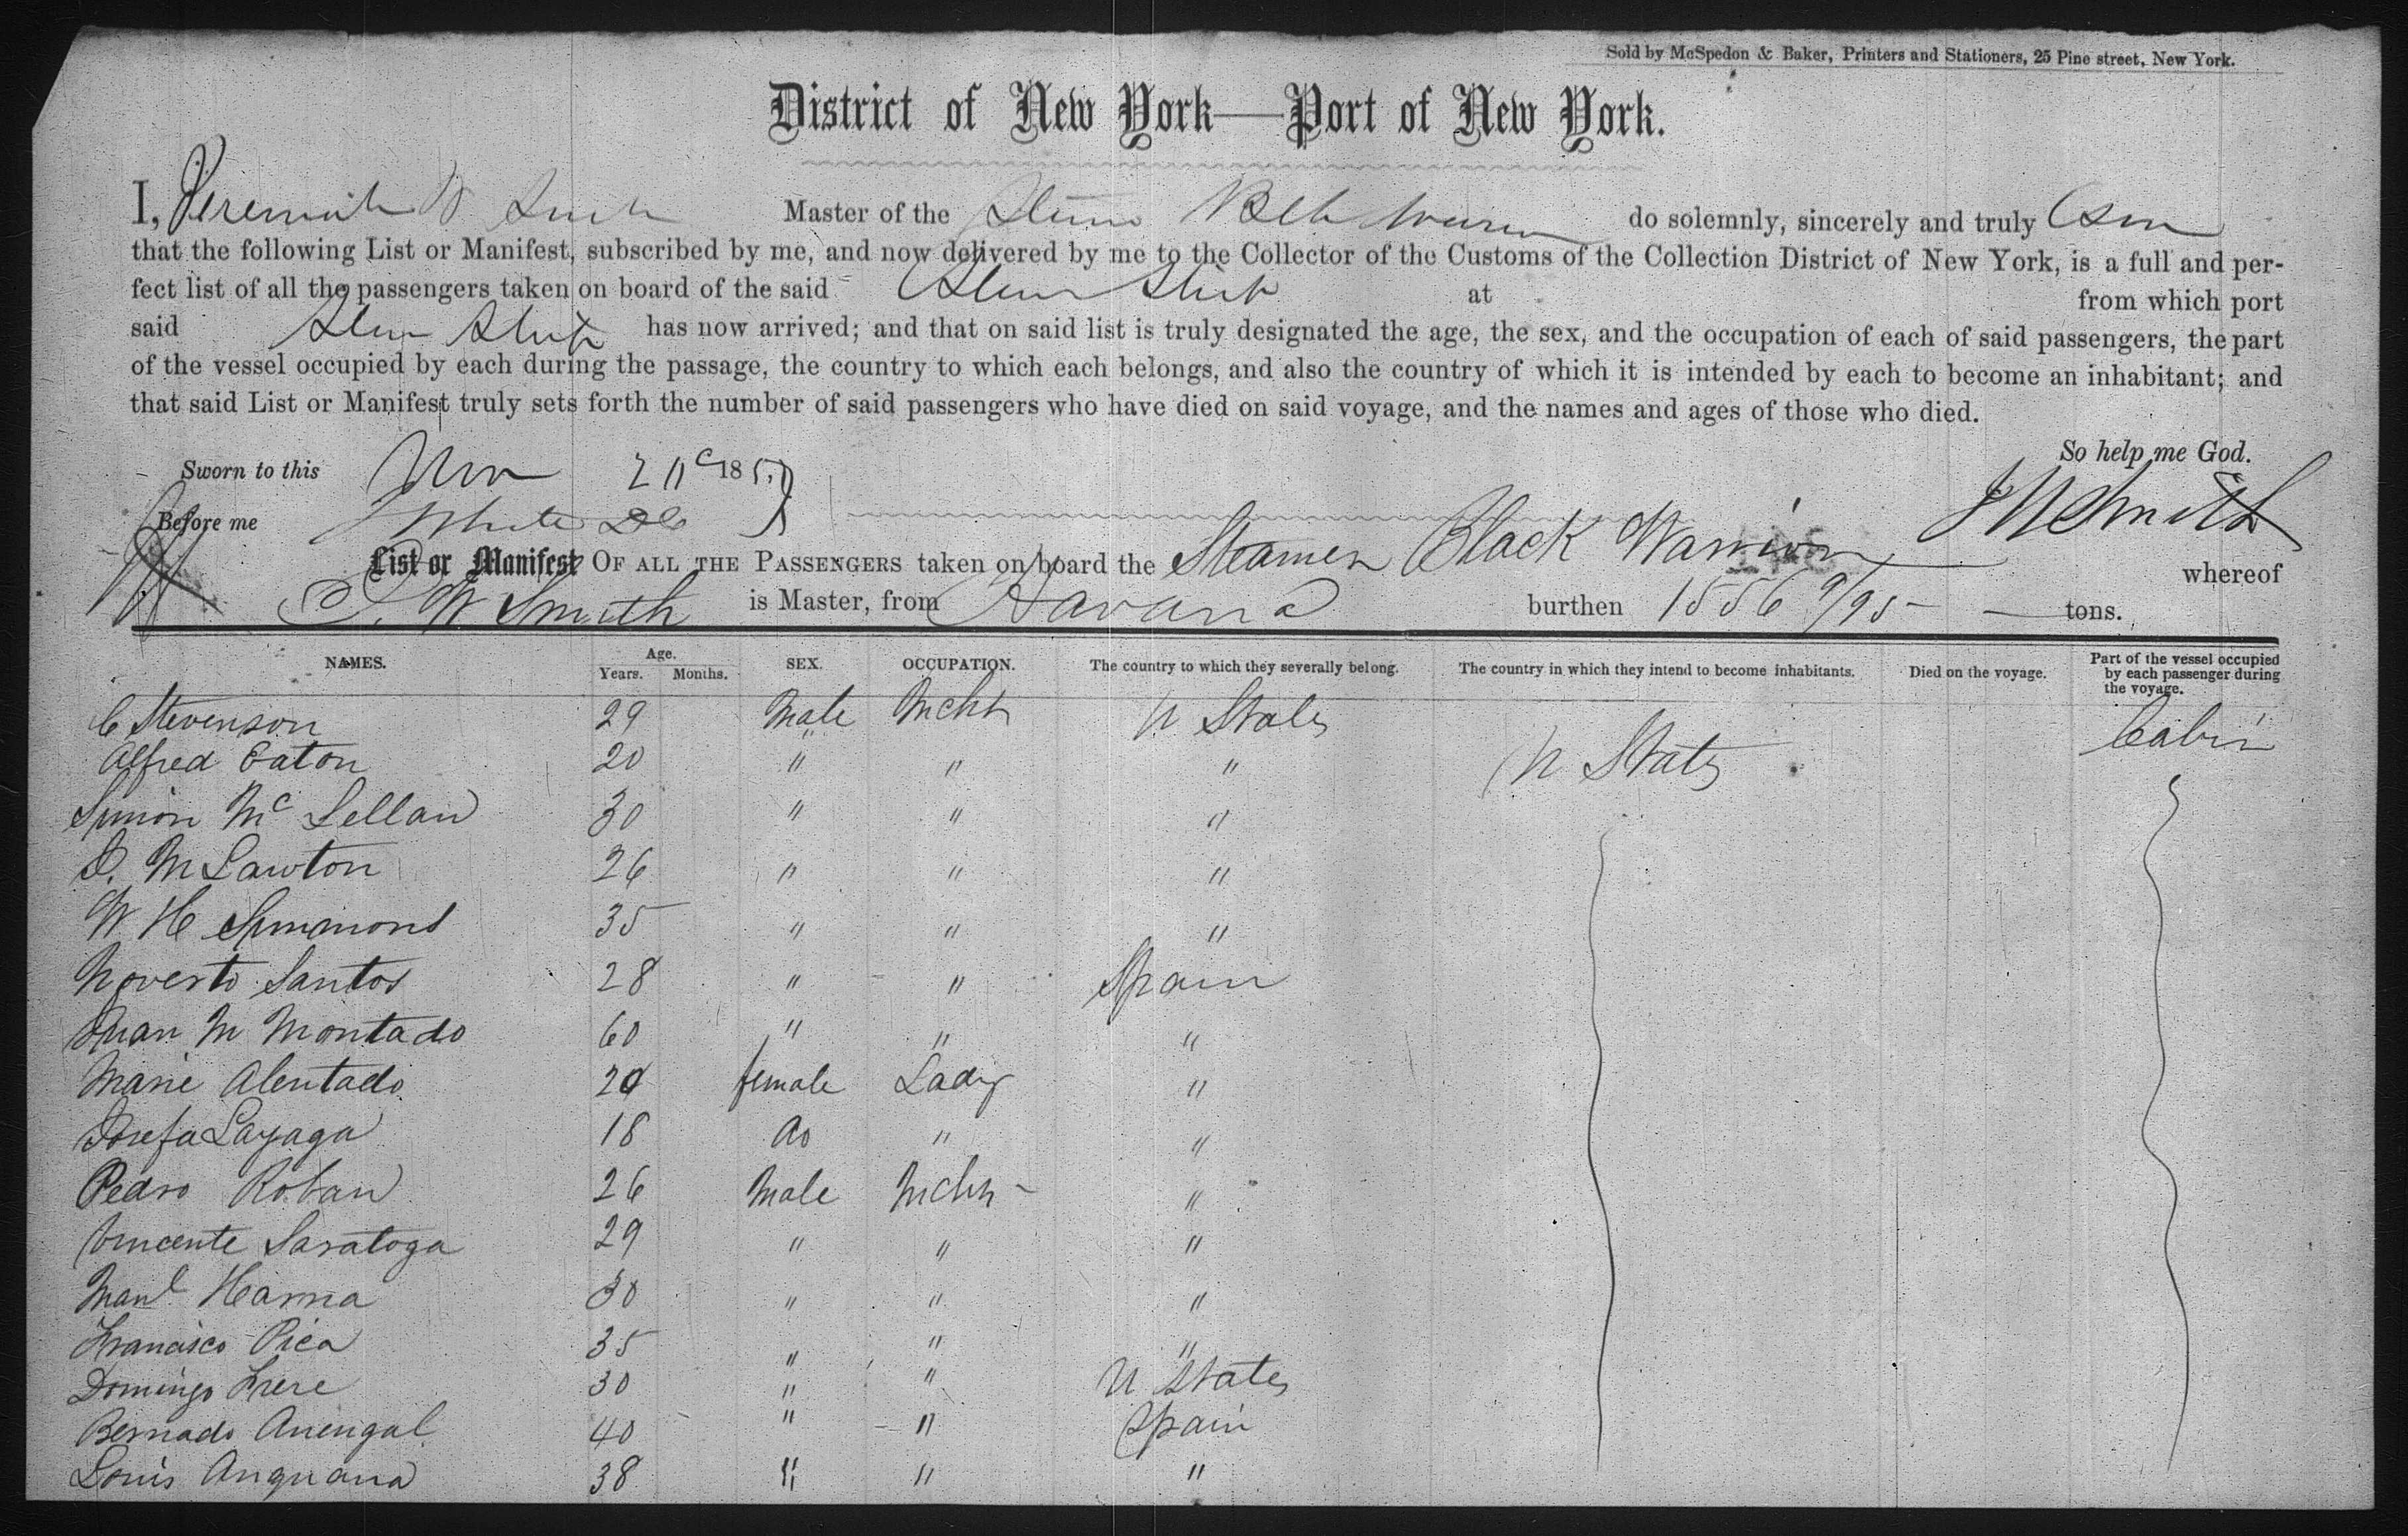 Sold by McSpedon & Baker, Printers and Stationers, 25 Pine street, New York.
District of New York—Port of New York.
I, Jeremiah W Smith Master of the Steamer Blk Warrior do solemnly, sincerely and truly
that the following List or Manifest, subscribed by me, and now delivered by me to the Collector of the Customs of the Collection District of New York, is a full and per-
fect list of all the passengers taken on board of the said Steam Ship at from which port
said Steam Ship has now arrived; and that on said list is truly designated the age, the sex, and the occupation of each of said passengers, the part
of the vessel occupied by each during the passage, the country to which each belongs, and also the country of which it is intended by each to become an inhabitant; and
that said List or Manifest truly sets forth the number of said passengers who have died on said voyage, and the names and ages of those who died.
So help me God.
Sworn to this Nov 185
J W Smith
Before me White
List or Manifest OF ALL THE PASSENGERS taken on board the Steamer Black Warrior whereof
J. W Smith is Master, from Havana burthen 1556 9/95 tons.
NAMES. Age. Years. Months. SEX. OCCUPATION. The country to which they severally belong. The country in which they intend to become inhabitants. Died on the voyage. Part of the vessel occupied by each passenger during the voyage.
C Stevenson 29 Male Mcht U States U States Cabin
Alfred Eaton 20 " " "
Simon Mc Lellan 30 " " "
J. M Lawton 26 " " "
W H Simmons 35 " " "
Noverto Santos 28 " " Spain
Juan M Montado 60 " " "
Marie Alentado 20 female Lady "
Josefa Layaga 18 do " "
Pedro Roban 26 Male Mcht "
Vincente Saratoga 29 " " "
Manl Hanna 30 " " "
Francisco Pica 35 " " "
Domingo Frere 30 " " U States
Bernado Anengal 40 " " Spain
Louis Anguana 38 " " "